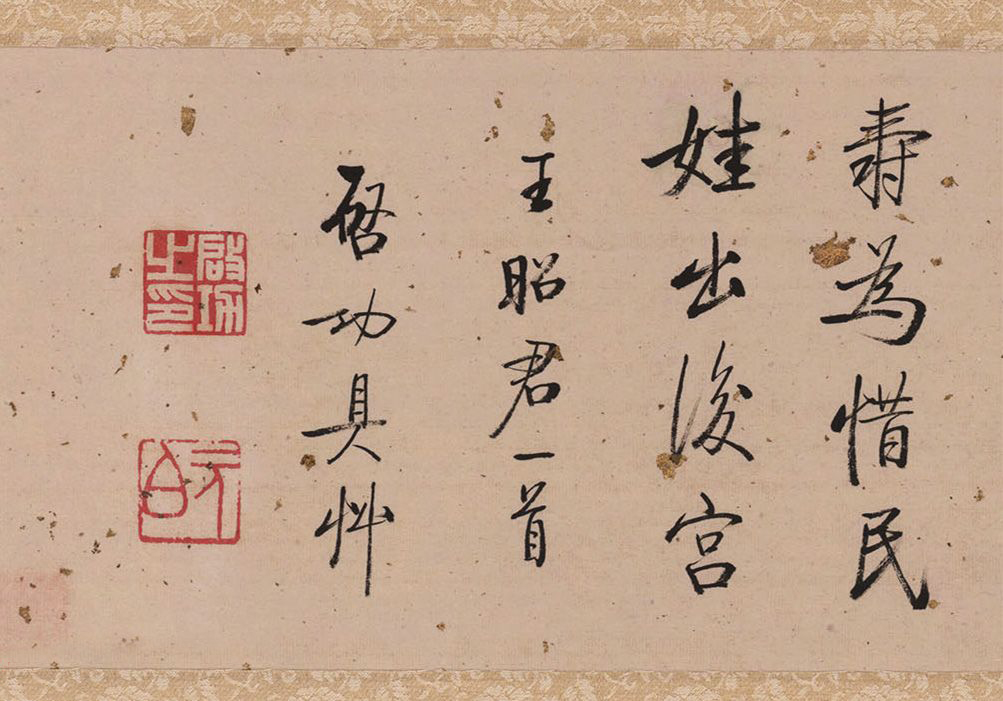 寿為惜民
娃出後宫
王昭君一首
啓功具艸
啟功之印
元白